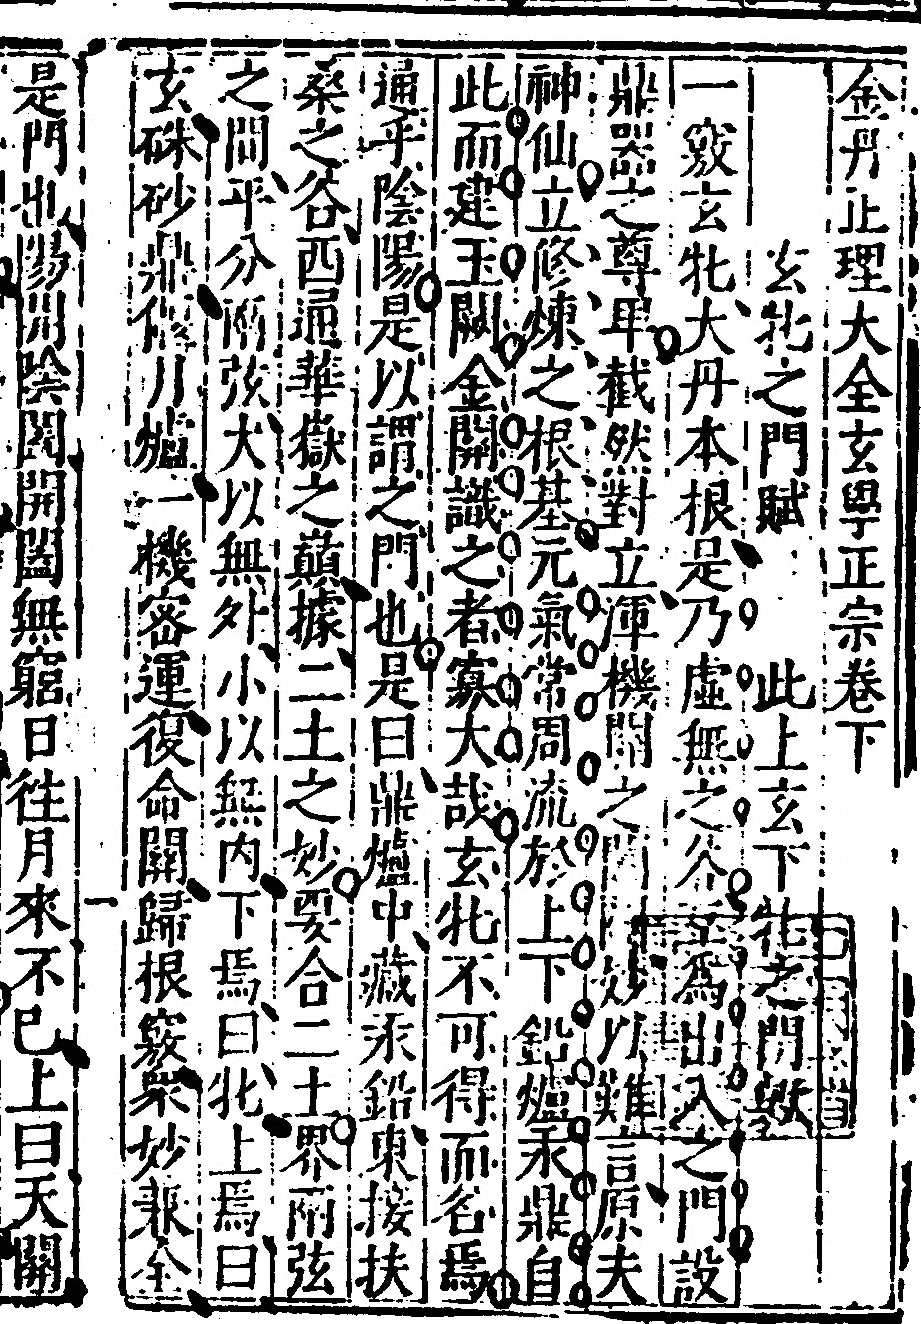 金丹正理大全玄學正宗卷下
玄牝之門賦 此上玄下牝之門
一竅玄牝大丹本根是乃虛無之谷空爲出入之門設
鼎器之尊卑截然對立渾機關之妙以難言原夫
神仙立修煉之根基元氣常周流於上下鉛爐汞鼎自
此而建玉關金關識之者寡大哉玄牝不可得而名焉
通乎陰陽是以謂之門也是曰鼎爐中藏汞鉛東接扶
桑之谷西通華嶽之巔據二土之妙要合二土界兩弦
之間平分兩弦大以無外小以無内下焉曰牝上焉曰
玄硃砂鼎偃月爐一機密運復命關歸根竅衆妙兼全
是門也陽開陰闔開闔無窮日往月來不已上曰天關